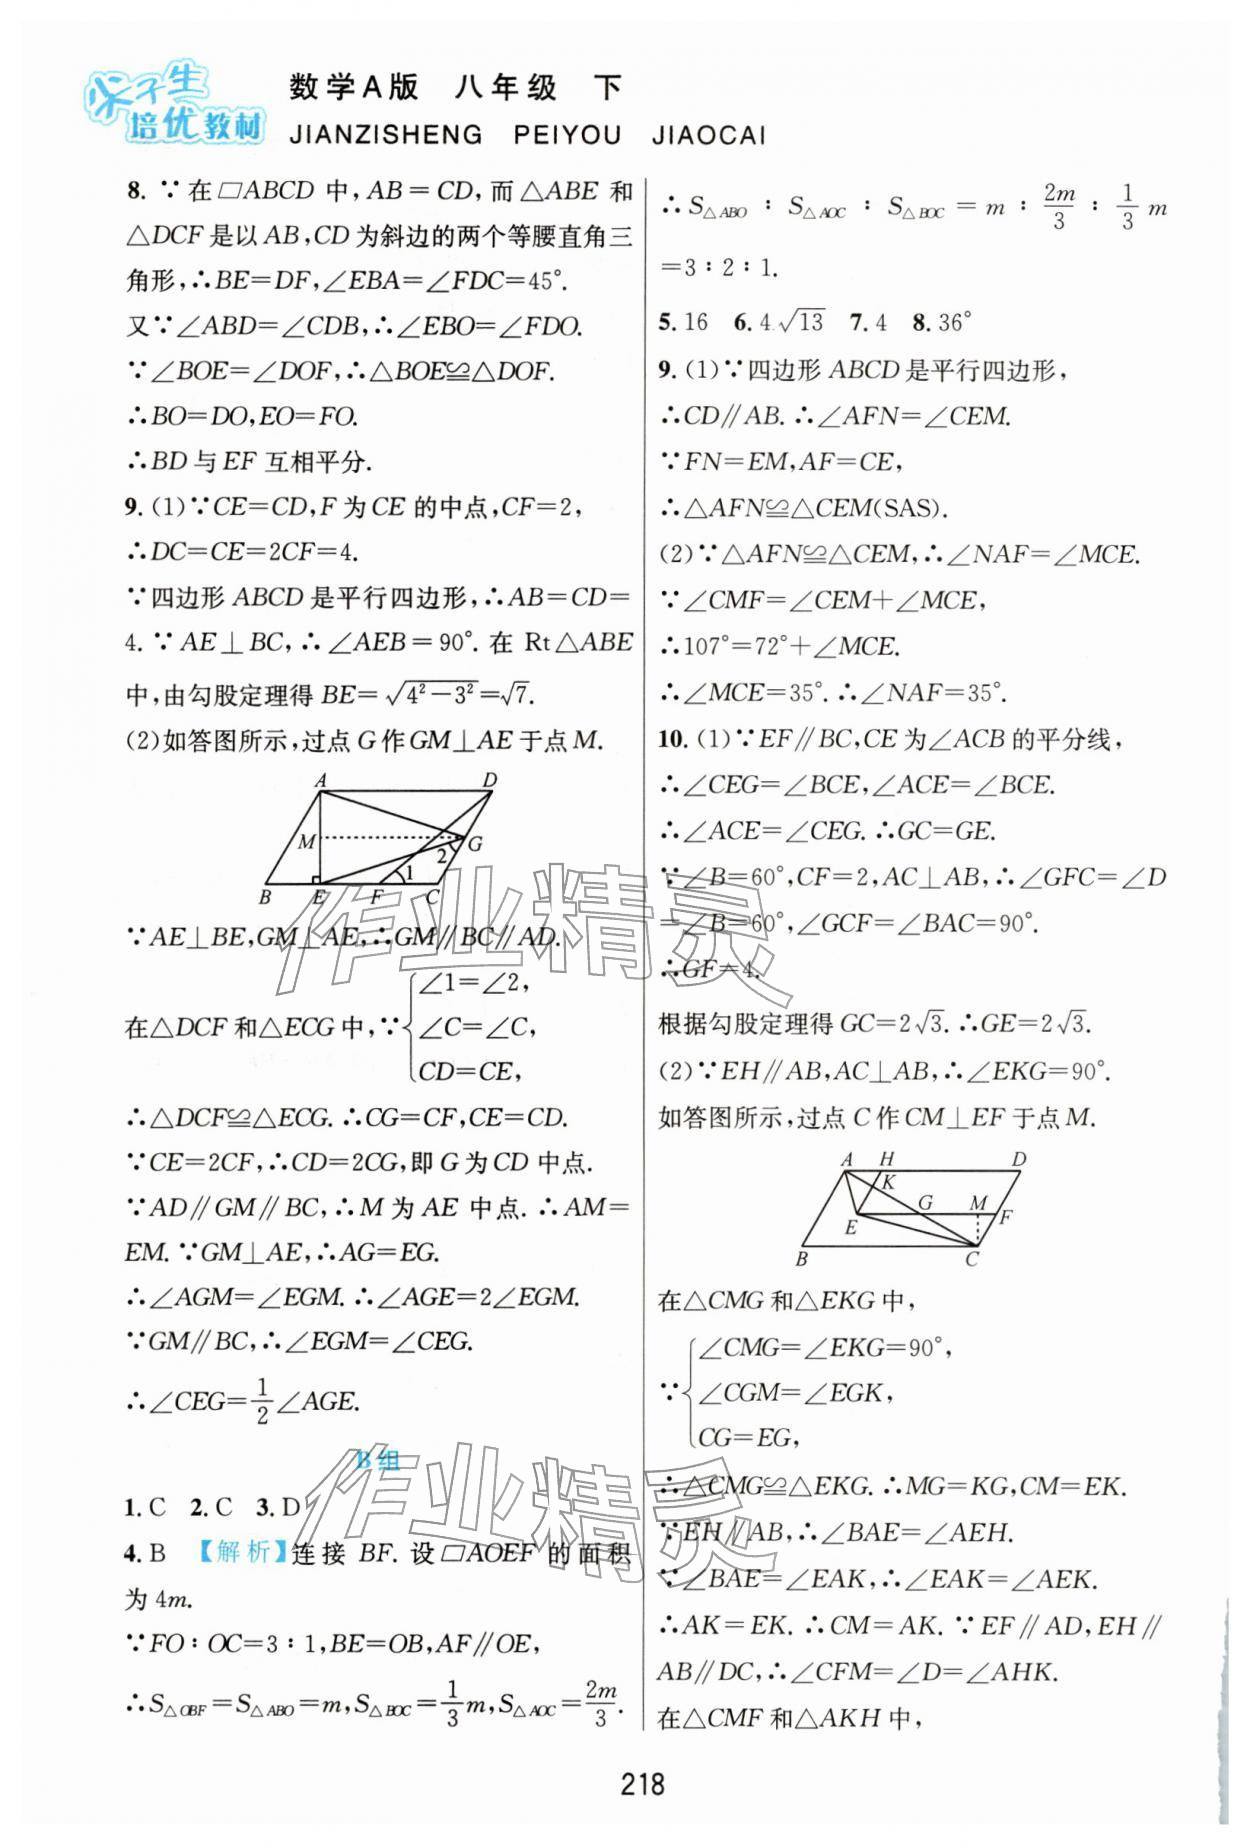 尖子生
培优教材
数学A版 八年级 下
JIANZISHENG PEIYOU JIAOCAI
8. ∵在▱ABCD 中,AB=CD,而△ABE 和
△DCF 是以 AB,CD 为斜边的两个等腰直角三
角形,∴BE=DF,∠EBA=∠FDC=45°.
又∵∠ABD=∠CDB,∴∠EBO=∠FDO.
∵∠BOE=∠DOF,∴△BOE≌△DOF.
∴BO=DO,EO=FO.
∴BD 与 EF 互相平分.
9. (1)∵CE=CD,F 为 CE 的中点,CF=2,
∴DC=CE=2CF=4.
∵四边形 ABCD 是平行四边形,∴AB=CD=
4. ∵AE⊥BC,∴∠AEB=90°. 在 Rt△ABE
中,由勾股定理得 BE=√(4²-3²)=√7.
(2)如答图所示,过点 G 作 GM⊥AE 于点 M.
A D
M 2 G
1
B E F C
∵AE⊥BE,GM⊥AE,∴GM∥BC∥AD.
在△DCF 和△ECG 中,∵{∠1=∠2,
∠C=∠C,
CD=CE,
∴△DCF≌△ECG. ∴CG=CF,CE=CD.
∵CE=2CF,∴CD=2CG,即 G 为 CD 中点.
∵AD∥GM∥BC,∴M 为 AE 中点. ∴AM=
EM. ∵GM⊥AE,∴AG=EG.
∴∠AGM=∠EGM. ∴∠AGE=2∠EGM.
∵GM∥BC,∴∠EGM=∠CEG.
∴∠CEG=1/2∠AGE.
B组
1. C 2. C 3. D
4. B 【解析】连接 BF. 设▱AOEF 的面积
为 4m.
∵FO∶OC=3∶1,BE=OB,AF∥OE,
∴S△OBF=S△ABO=m,S△BOC=1/3m,S△AOC=2m/3.
∴S△ABO∶S△AOC∶S△BOC=m∶2m/3∶1/3 m
=3∶2∶1.
5. 16 6. 4√13 7. 4 8. 36°
9. (1)∵四边形 ABCD 是平行四边形,
∴CD∥AB. ∴∠AFN=∠CEM.
∵FN=EM,AF=CE,
∴△AFN≌△CEM(SAS).
(2)∵△AFN≌△CEM,∴∠NAF=∠MCE.
∵∠CMF=∠CEM+∠MCE,
∴107°=72°+∠MCE.
∴∠MCE=35°. ∴∠NAF=35°.
10. (1)∵EF∥BC,CE 为∠ACB 的平分线,
∴∠CEG=∠BCE,∠ACE=∠BCE.
∴∠ACE=∠CEG. ∴GC=GE.
∵∠B=60°,CF=2,AC⊥AB,∴∠GFC=∠D
=∠B=60°,∠GCF=∠BAC=90°.
∴GF=4.
根据勾股定理得 GC=2√3. ∴GE=2√3.
(2)∵EH∥AB,AC⊥AB,∴∠EKG=90°.
如答图所示,过点 C 作 CM⊥EF 于点 M.
A H D
K
G M
E F
B C
在△CMG 和△EKG 中,
∵{∠CMG=∠EKG=90°,
∠CGM=∠EGK,
CG=EG,
∴△CMG≌△EKG. ∴MG=KG,CM=EK.
∵EH∥AB,∴∠BAE=∠AEH.
∵∠BAE=∠EAK,∴∠EAK=∠AEK.
∴AK=EK. ∴CM=AK. ∵EF∥AD,EH∥
AB∥DC,∴∠CFM=∠D=∠AHK.
在△CMF 和△AKH 中,
218
作业精灵
作业精灵